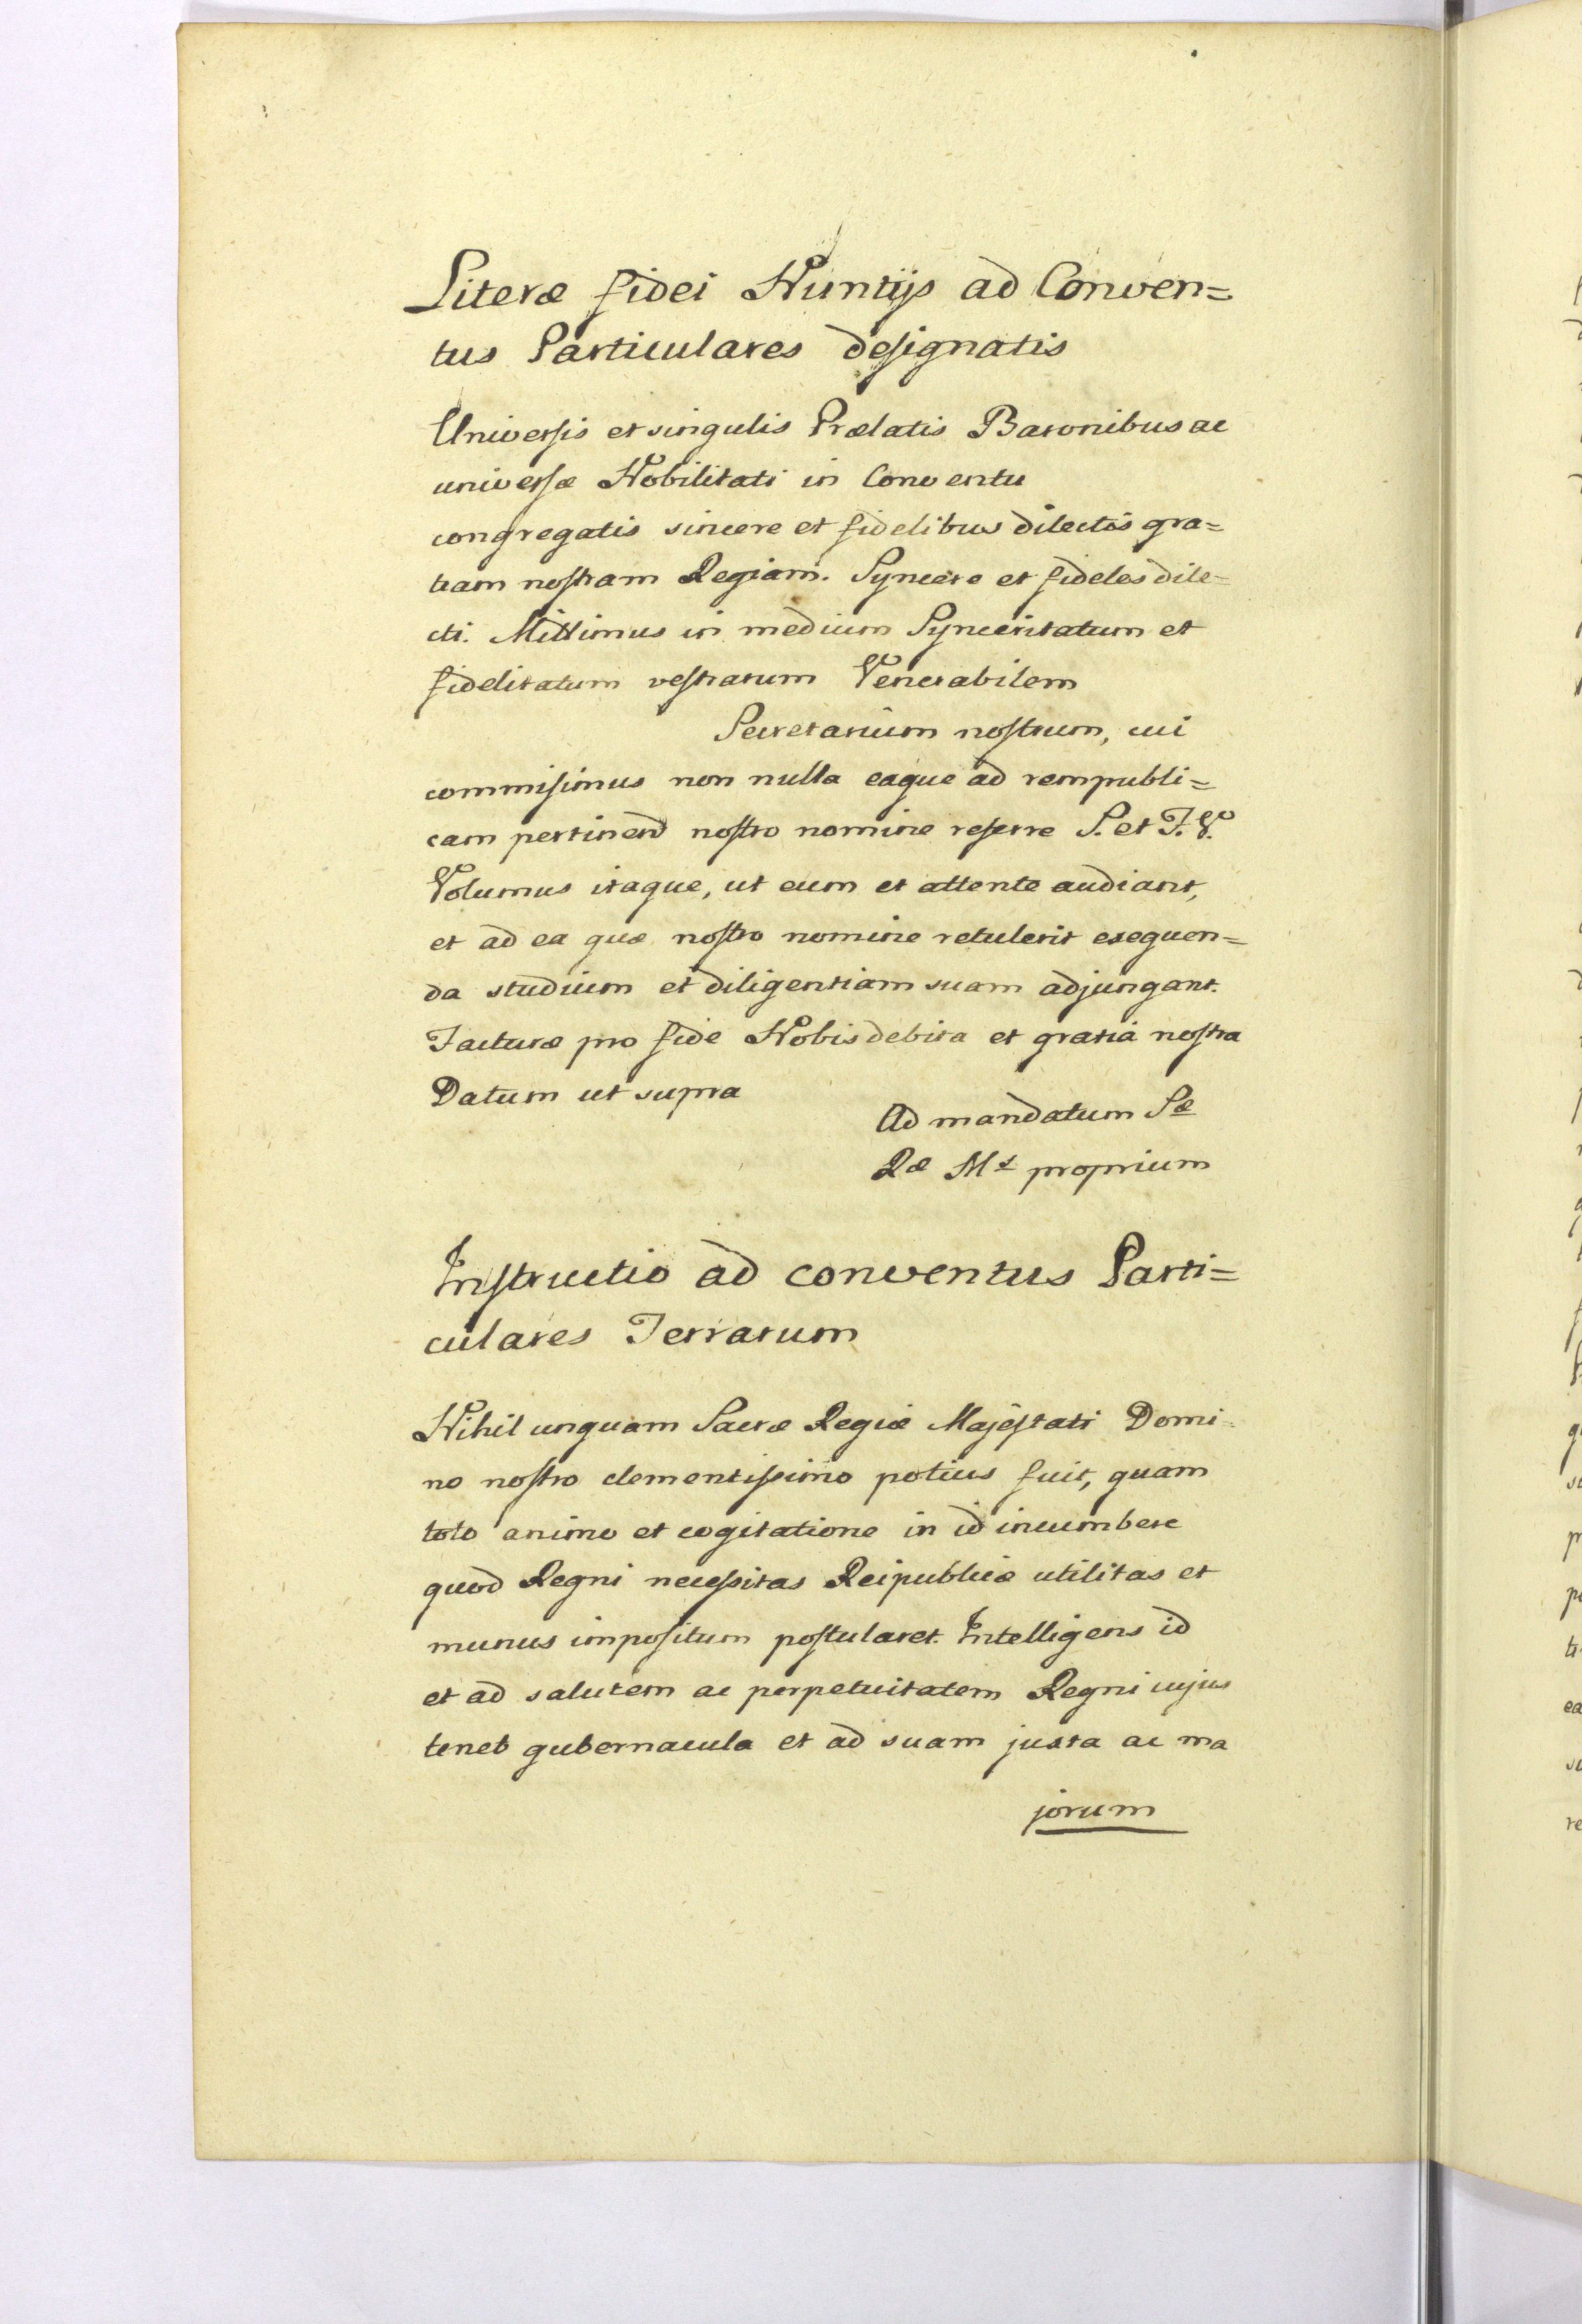 Literæ fidei Nuntijs ad Conven=
tus Particulares designatis
Universis et singulis Prælatis Baronibus ac
universæ Nobilitati in Conventu
congregatis sincere et fidelibus dilectis gra=
tiam nostram Regiam. Syncere et fideles dile=
cti. Mittimus in medium Synceritatum et
fidelitatum vestrarum Venerabilem
Secretarium nostrum, cui
commisimus non nulla eaque ad rempubli=
cam pertinend nostro nomine referre S. et F. V.
Volumus itaque, ut eum et attente audiant,
et ad ea quæ nostro nomine retulerit exequen=
da studium et diligentiam suam adjungant.
Facturæ pro fide Nobis debita et gratia nostra
Datum ut supra
Ad mandatum Sæ
Ræ Mt proprium
Instructio ad conventus Parti=
culares Terrarum
Nihil unquam Sacræ Regiæ Majestati Domi=
no nostro clementissimo potius fuit, quam
toto animo et cogitatione in id incumbere
quod Regni necessitas Reipublicæ utilitas et
munus impositum postularet. Intelligens id
et ad salutem ac perpetuitatem Regni cujus
tenet gubernacula et ad suam juxta ac ma
jorum